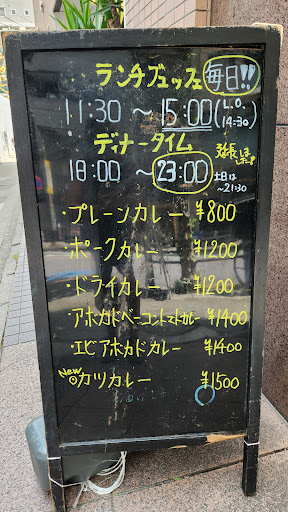 ランチブュッフェ 毎日!!
11:30 ~ 15:00 (L.O. 14:30)
ディナータイム 延長しました!
18:00 ~ 23:00 土日は ~21:30
・プレーンカレー ¥800
・ポークカレー ¥1200
・ドライカレー ¥1200
・アボカドベーコントマトカレー ¥1400
・エビアボカドカレー ¥1400
New カツカレー ¥1500